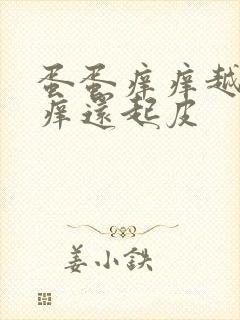 蛋蛋痒痒越
痒還起皮
姜小鉄